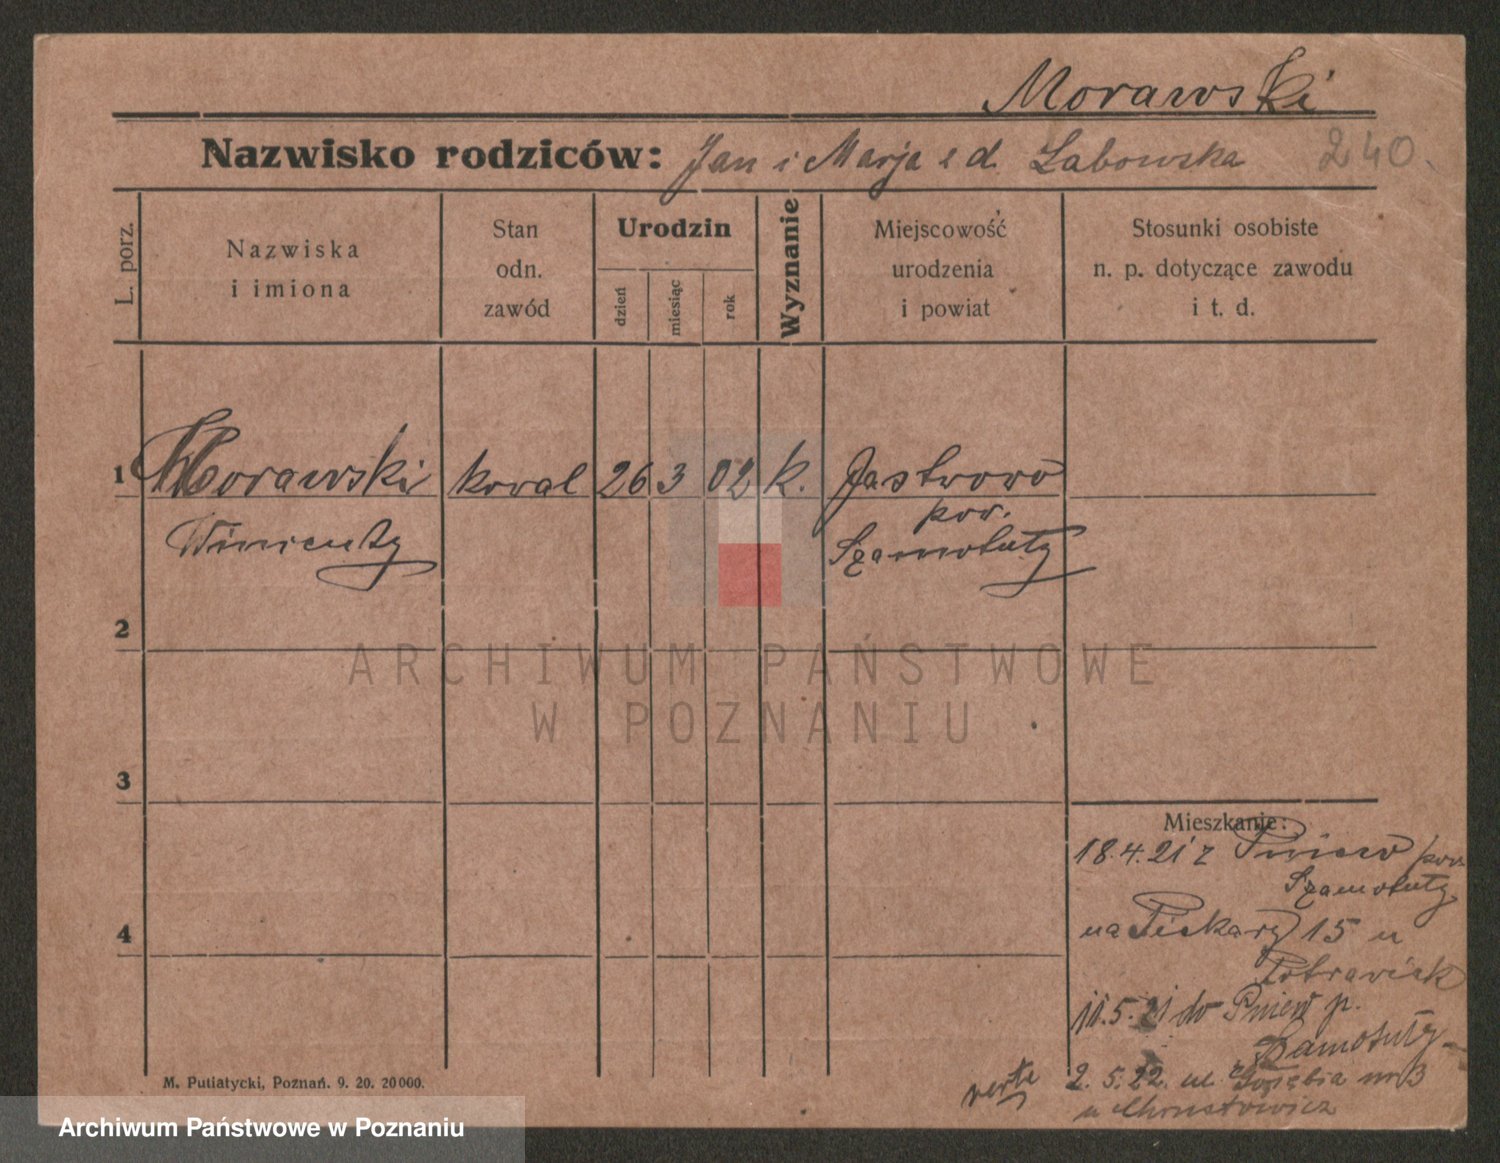 Morawski
Nazwisko rodziców: Jan i Marja z d. Labowska 240
L. porz.
Nazwiska
i imiona
Stan
odn.
zawód
Urodzin
dzień
miesiąc
rok
Wyznanie
Miejscowość
urodzenia
i powiat
Stosunki osobiste
n. p. dotyczące zawodu
i t. d.
1 Morawski koval 26 3 02 k. Jastrowo
pow.
Wincenty Szamotuły
2
3
4
Mieszkanie:
18.4.21 z Pniew pow.
Szamotuły
na Piekary 15 u
11.5.21 do Pniew p.
Szamotuły
verte 2.5.22. ul. Gołębia nr 3
u
M. Putiatycki, Poznań. 9. 20. 20000.
ARCHIWUM PAŃSTWOWE
W POZNANIU
Archiwum Państwowe w Poznaniu